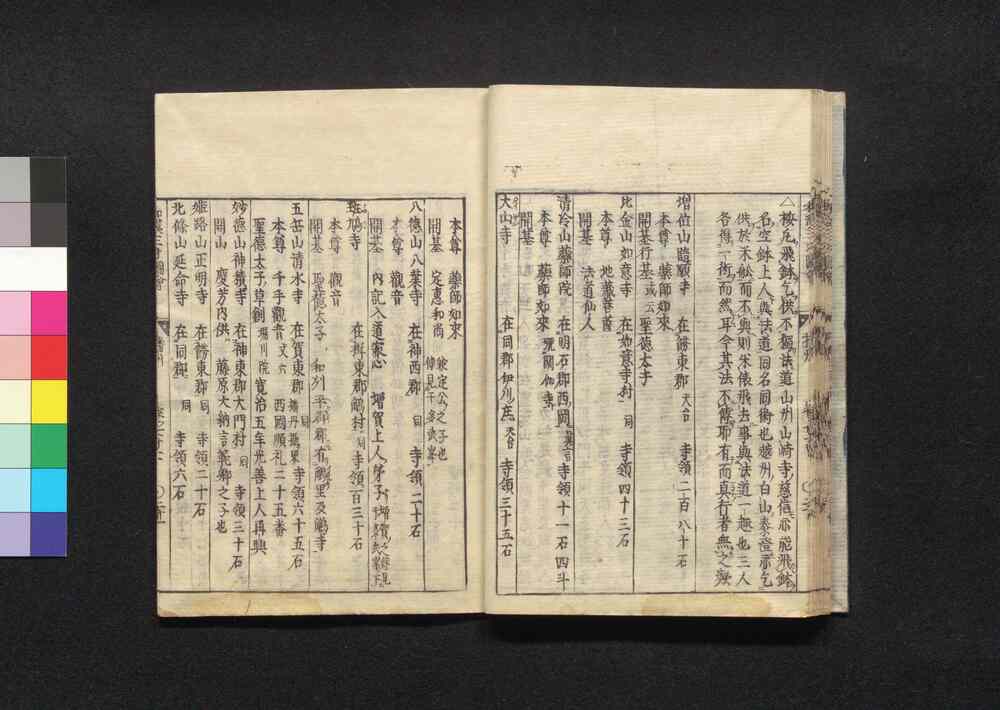 △按凡飛鉢乞供不獨法道山州山崎寺慈信亦能飛鉢
名空鉢上人與法道同名同術也越州白山泰澄亦乞
供於米舩而不與則米俵飛去事與法道一趣也三人
者得一術而然耳今其法不傳耶有而真行者無之歟
増位山隨願寺 在餝東郡 天台 寺領二百八十石
本尊 藥師如來
開基行基 或云 聖德太子
比金山如意寺 在如意寺村 同 寺領四十三石
本尊 地藏菩薩
開基 法道仙人
清冷山藥師院 在明石郡西岡 真言 寺領十一石四斗
本尊 藥師如來
開基
大山寺 在同郡伊川庄 天台 寺領三十五石
本尊 藥師如來
開基 定惠和尚
八德山八葉寺 在神西郡 同 寺領二十石
本尊 觀音
開基 内記入道寂心 増賀上人弟子
斑鳩寺 在揖東郡鵤村 同 寺領百三十石
本尊 觀音
開基 聖德太子
五缶山清水寺 在加賀東郡 寺領六十五石
本尊 千手觀音 丈六 西國順礼二十五番
聖德太子草創 寛治五年光善上人再興
妙德山神積寺 在神東郡大門村 同 寺領三十石
開山 慶芳内供 藤原大納言義郷之子也
姫路山正明寺 在餝東郡 同 寺領二十石
北條山延命寺 在同郡 同 寺領六石